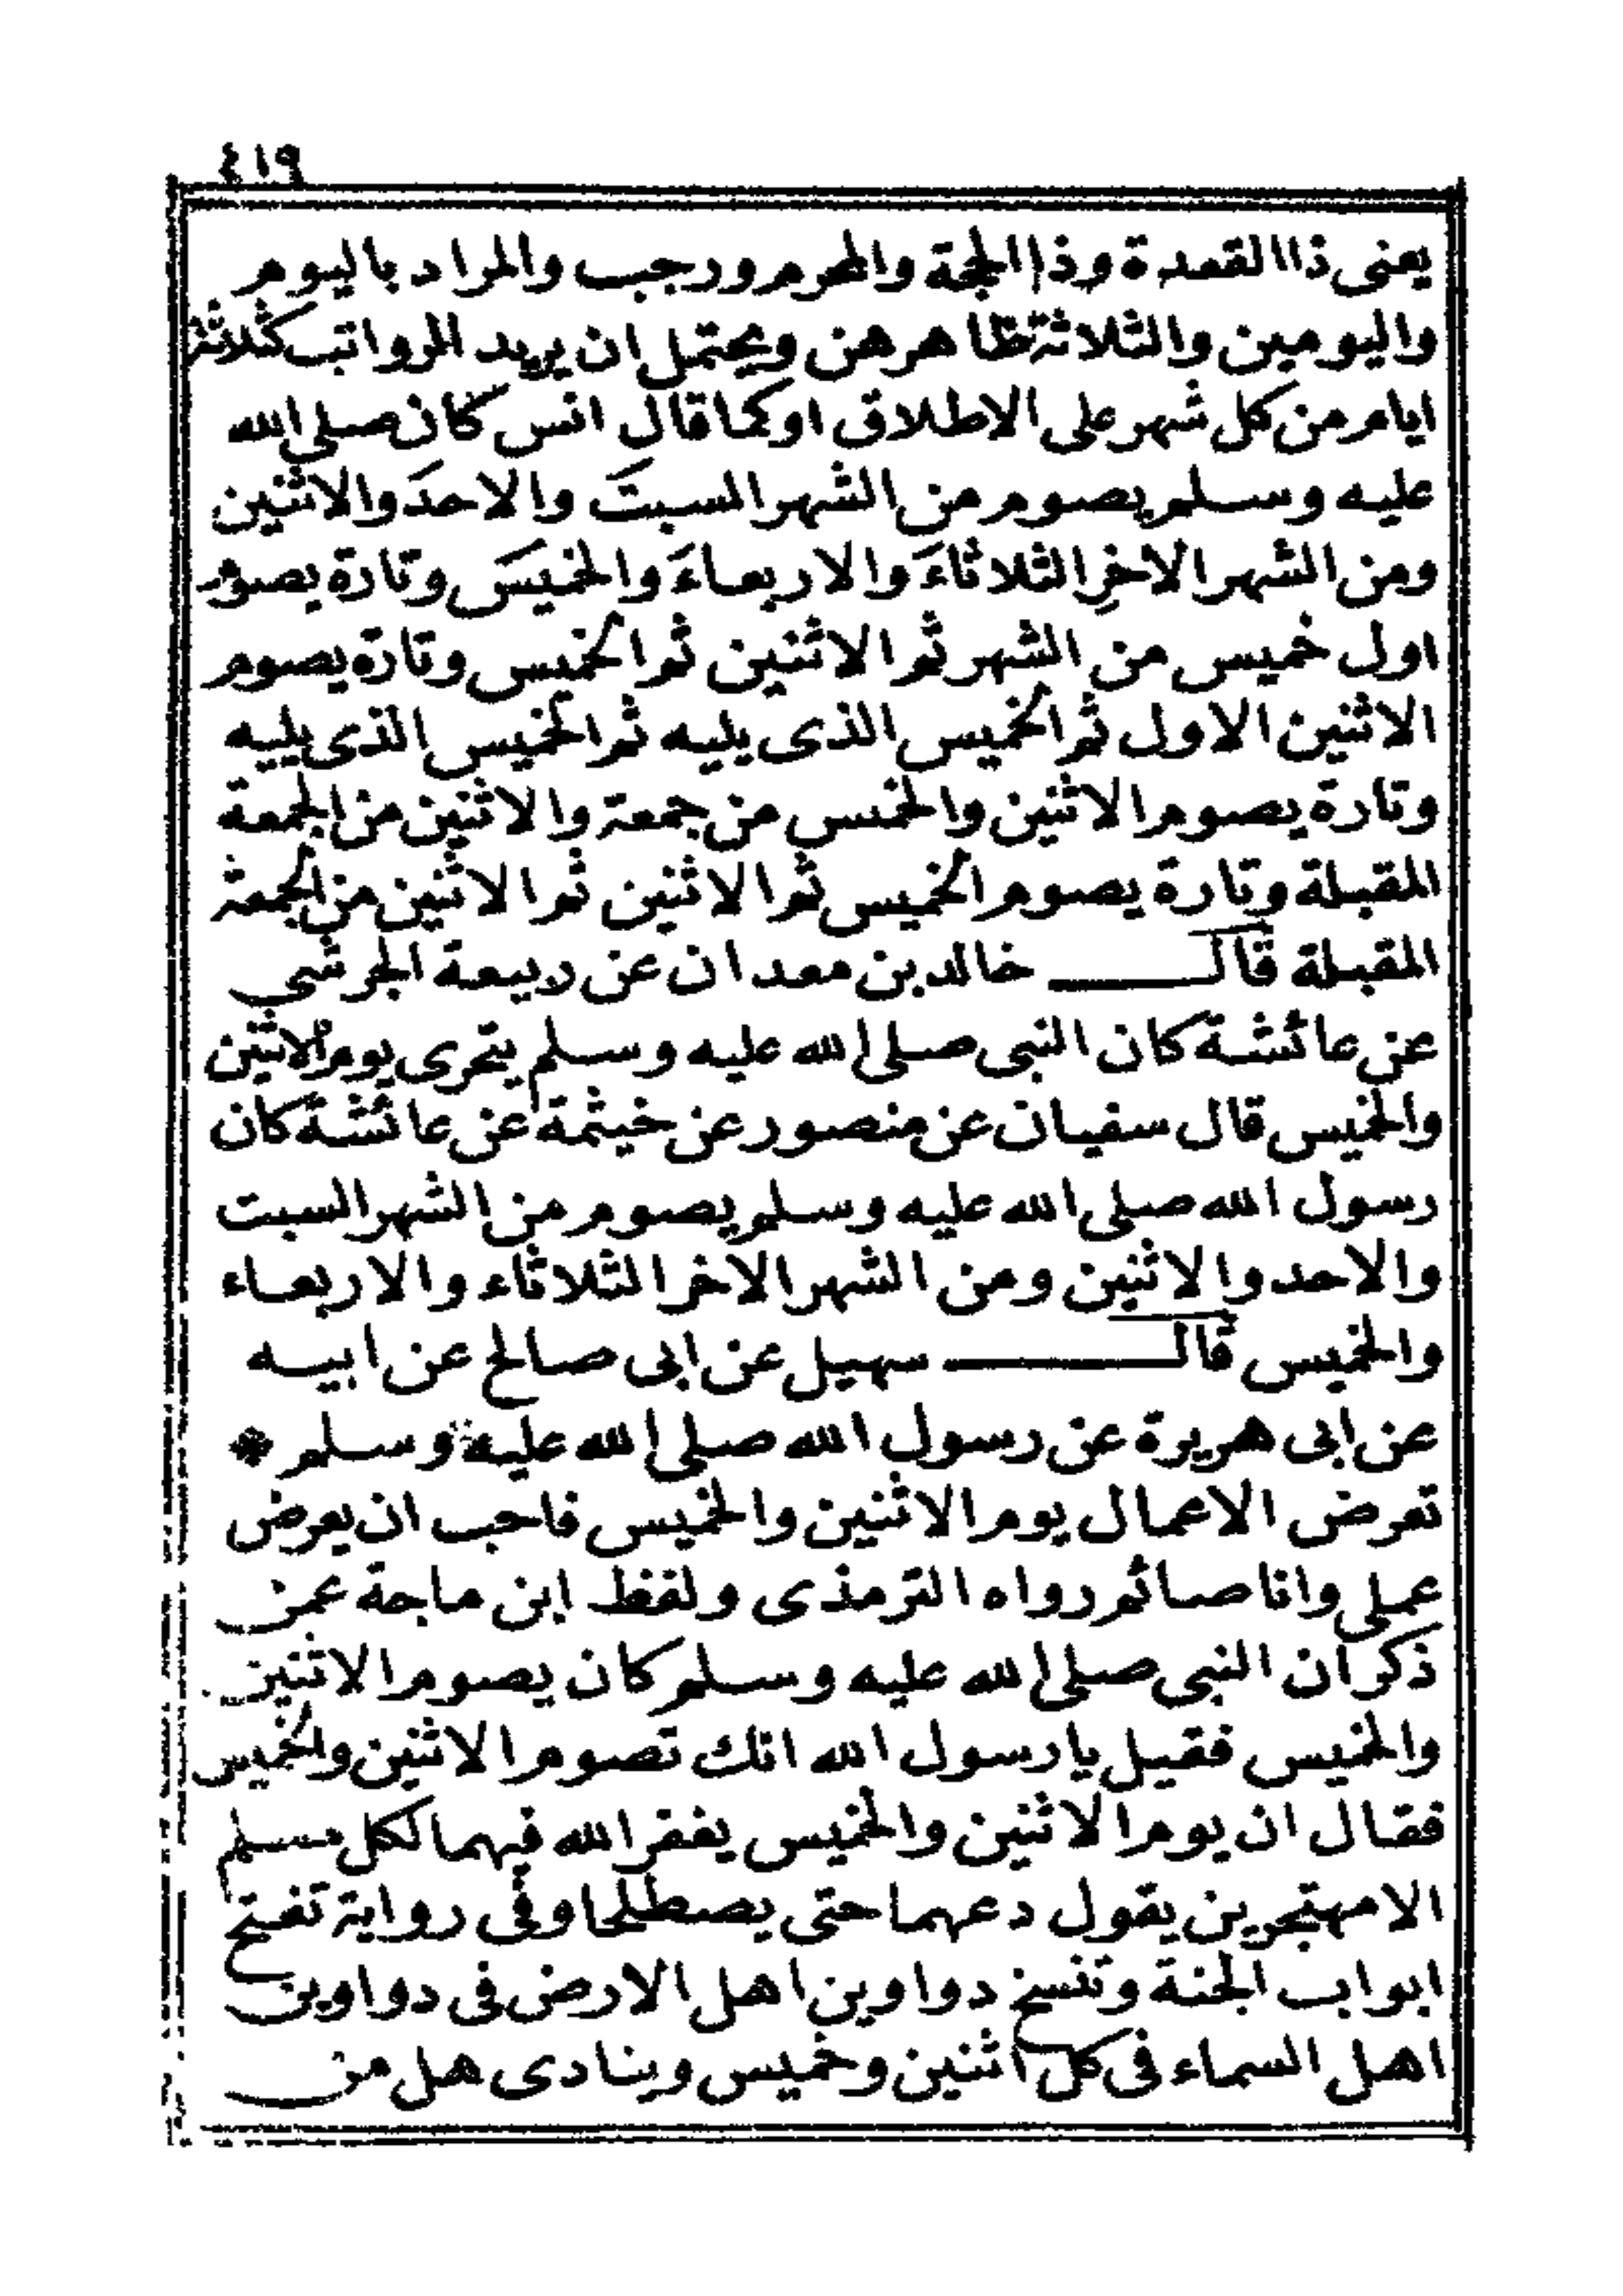 ٤١٩
يعنى ذا القعدة وذا الحجة والمحرم ورجب والمراد باليوم
واليومين والثلاثة ظاهرهن ويحتمل ان يريد الرواتب كثلاثة
ايام من كل شهر على الاطلاق او كما قال انس كان صلى الله
عليه وسلم يصوم من الشهر السبتَ والاحدَ والاثنين
ومن الشهر الاخرِ الثلاثاءَ والاربعاءَ والخميسَ وتارة يصوم
اول خميس من الشهر ثم الاثنين ثم الخميس وتارة يصوم
الاثنين الاول ثم الخميس الذى يليه ثم الخميس الذى يليه
وتارة يصوم الاثنين والخمىس من جمعة والاثنين من الجمعة
المقبلة وتارة يصوم الخميس ثم الاثنين ثم الاثنين من الجمعة
المقبلة قال خالد بن معدان عن ربيعة الجرشي
عن عائشة كان النبى صلى الله عليه وسلم يتحرى يوم الاثنين
والخميس قال سفيان عن منصور عن خيثمة عن عائشة كان
رسول الله صلى الله عليه وسلم يصوم من الشهر السبت
والاحد والاثنين ومن الشهر الاخر الثلاثاء والاربعاء
والخميس قال سهيل عن ابى صالح عن ابيه
عن ابى هريرة عن رسول الله صلى الله عليه وسلم *
تعرض الاعمال يوم الاثنين والخميس فاحب ان يعرض
عملى وانا صائم رواه الترمذى ولفظ ابن ماجة عمن
ذكر ان النبى صلى الله عليه وسلم كان يصوم الاثنين
والخميس فقيل يا رسول الله انك تصوم الاثنين والخميس
فقال ان يوم الاثنين والخميس يغفر الله فيهما لكل مسلم
الا مهتجرين يقول دعهما حتى يصطلحا وفى رواية تفتح
ابواب الجنة وتنسخ دواوين اهل الارض فى دواوين
اهل السماء فى كل اثنين وخميس وينادى هل من